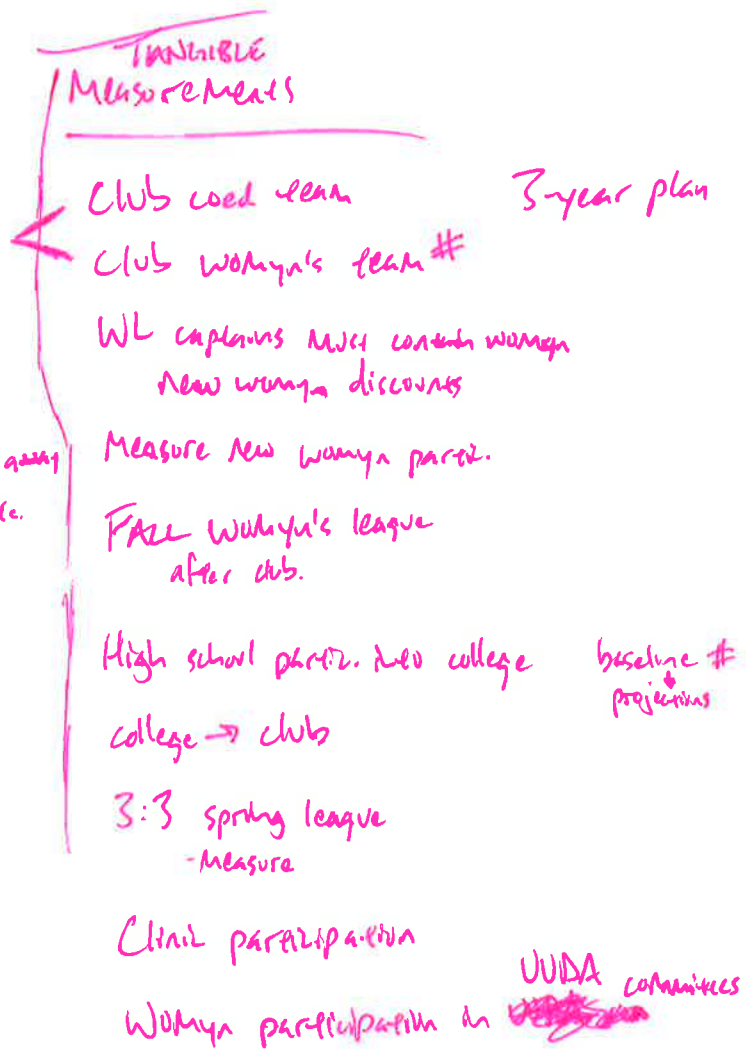 TANGIBLE
Measurements
Club coed team 3-year plan
Club womyn's team #
WL captains must contain womyn
new womyn discounts
Measure new womyn partic.
FALL womyn's league
after club.
High school partic. into college baseline #
projections
college → club
3:3 spring league
-measure
Clinic participation
Womyn participation in UUDA committees